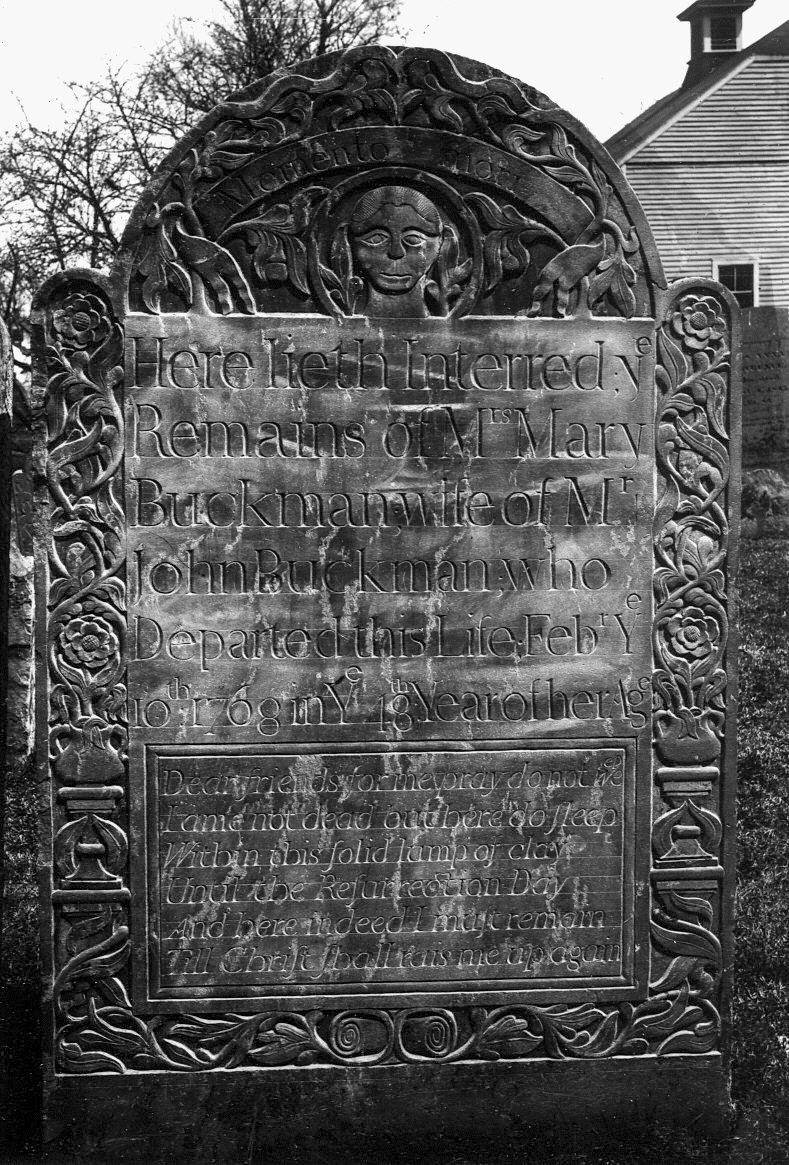 Momento mori
Here lieth Interred; yᵉ
Remains of Mʳˢ Mary
Buckman; wife of Mʳ
John Buckman; who
Departed this Life; Febʳʸ Yᵉ
10ᵗʰ: 1768 in Yᵉ 48ᵗʰ; Year of her Age
Dear friends for me pray do not
I ame not dead but here do ſleep
Within this ſolid lump of clay
Until the Reſurrection Day
And here indeed I muſt remain
Till Chriſt ſhall rais me up again